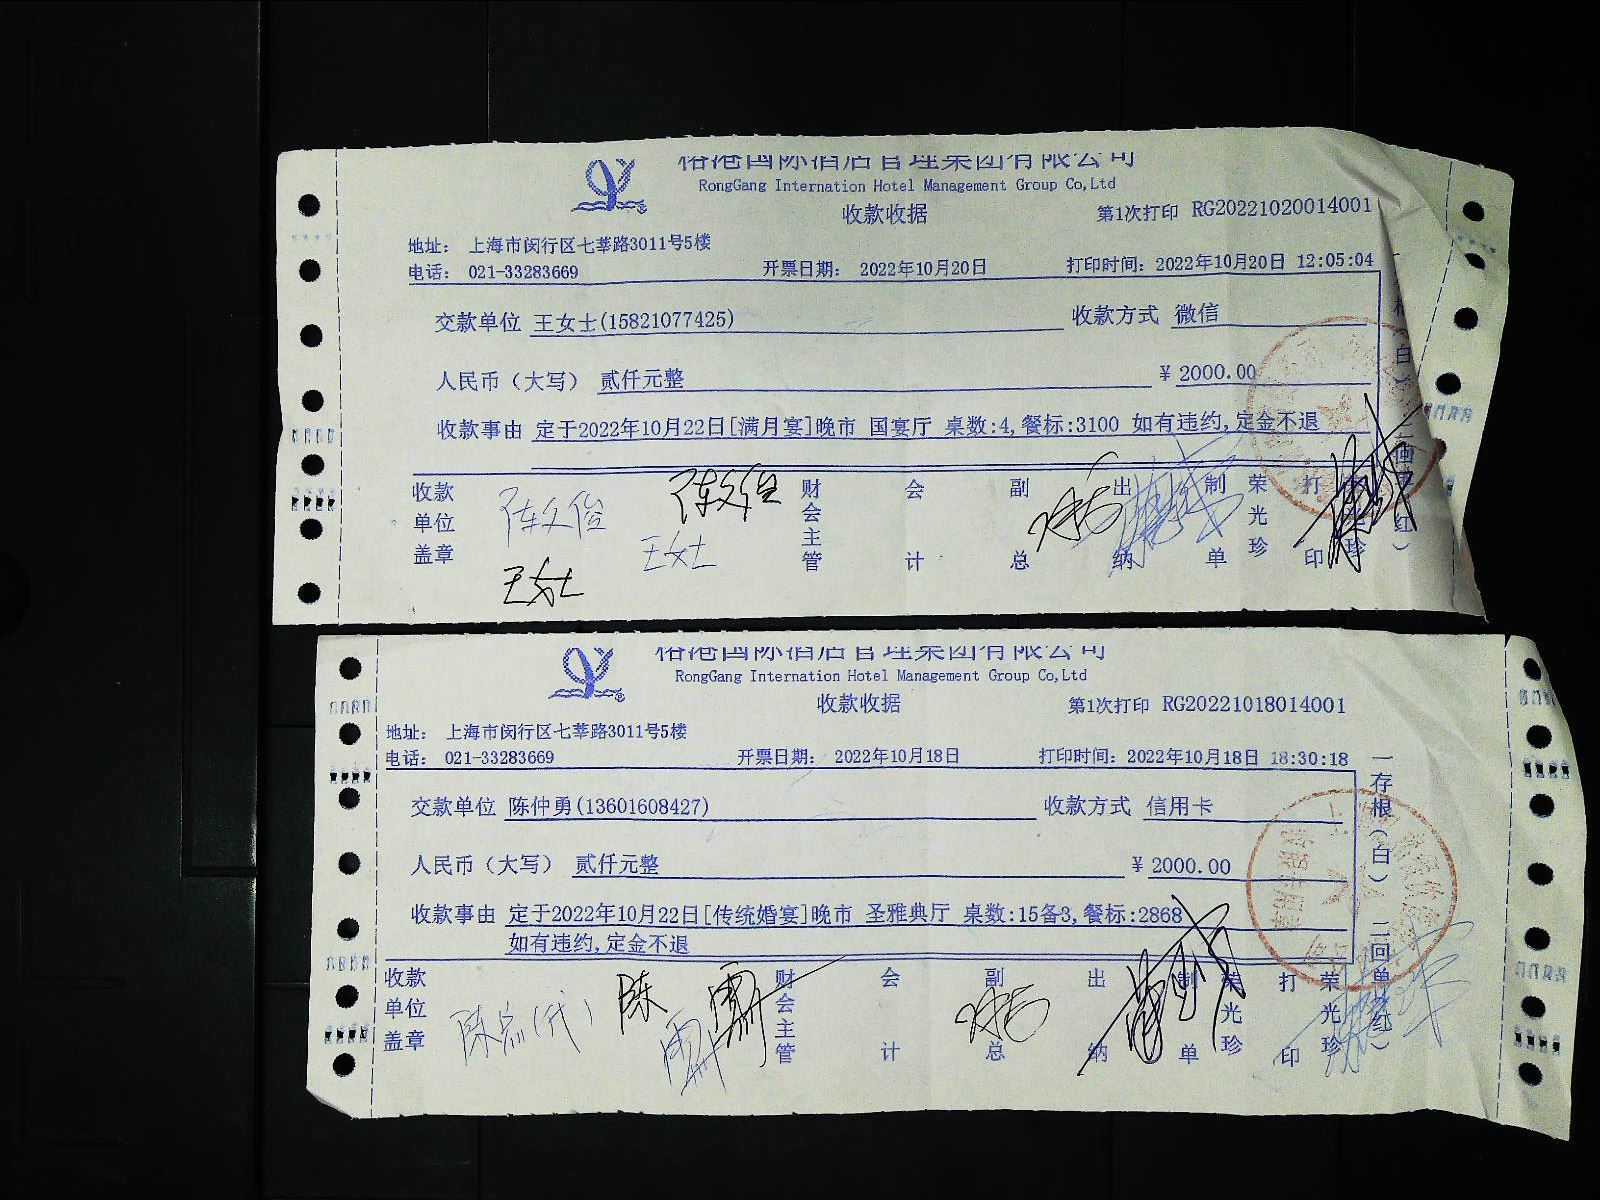 榕港国际酒店管理集团有限公司
RongGang Internation Hotel Management Group Co,Ltd
收款收据
第1次打印 RG20221020014001
地址： 上海市闵行区七莘路3011号5楼
电话： 021-33283669 开票日期： 2022年10月20日 打印时间：2022年10月20日 12:05:04
交款单位 王女士(15821077425) 收款方式 微信
人民币（大写） 贰仟元整 ￥2000.00
收款事由 定于2022年10月22日[满月宴]晚市 国宴厅 桌数:4,餐标:3100 如有违约,定金不退
收款单位盖章 陈文俊 陈文俊 王女士 王女士 财会主管 会计 副总 出纳 制单 荣光珍 打印
榕港国际酒店管理集团有限公司
RongGang Internation Hotel Management Group Co,Ltd
收款收据
第1次打印 RG20221018014001
地址： 上海市闵行区七莘路3011号5楼
电话： 021-33283669 开票日期： 2022年10月18日 打印时间：2022年10月18日 18:30:18
交款单位 陈仲勇(13601608427) 收款方式 信用卡
人民币（大写） 贰仟元整 ￥2000.00
收款事由 定于2022年10月22日[传统婚宴]晚市 圣雅典厅 桌数:15备3,餐标:2868
如有违约,定金不退
收款单位盖章 财会主管 会计 副总 出纳 制单 荣光珍 打印 荣光珍
一存根（白） 二回单（红）